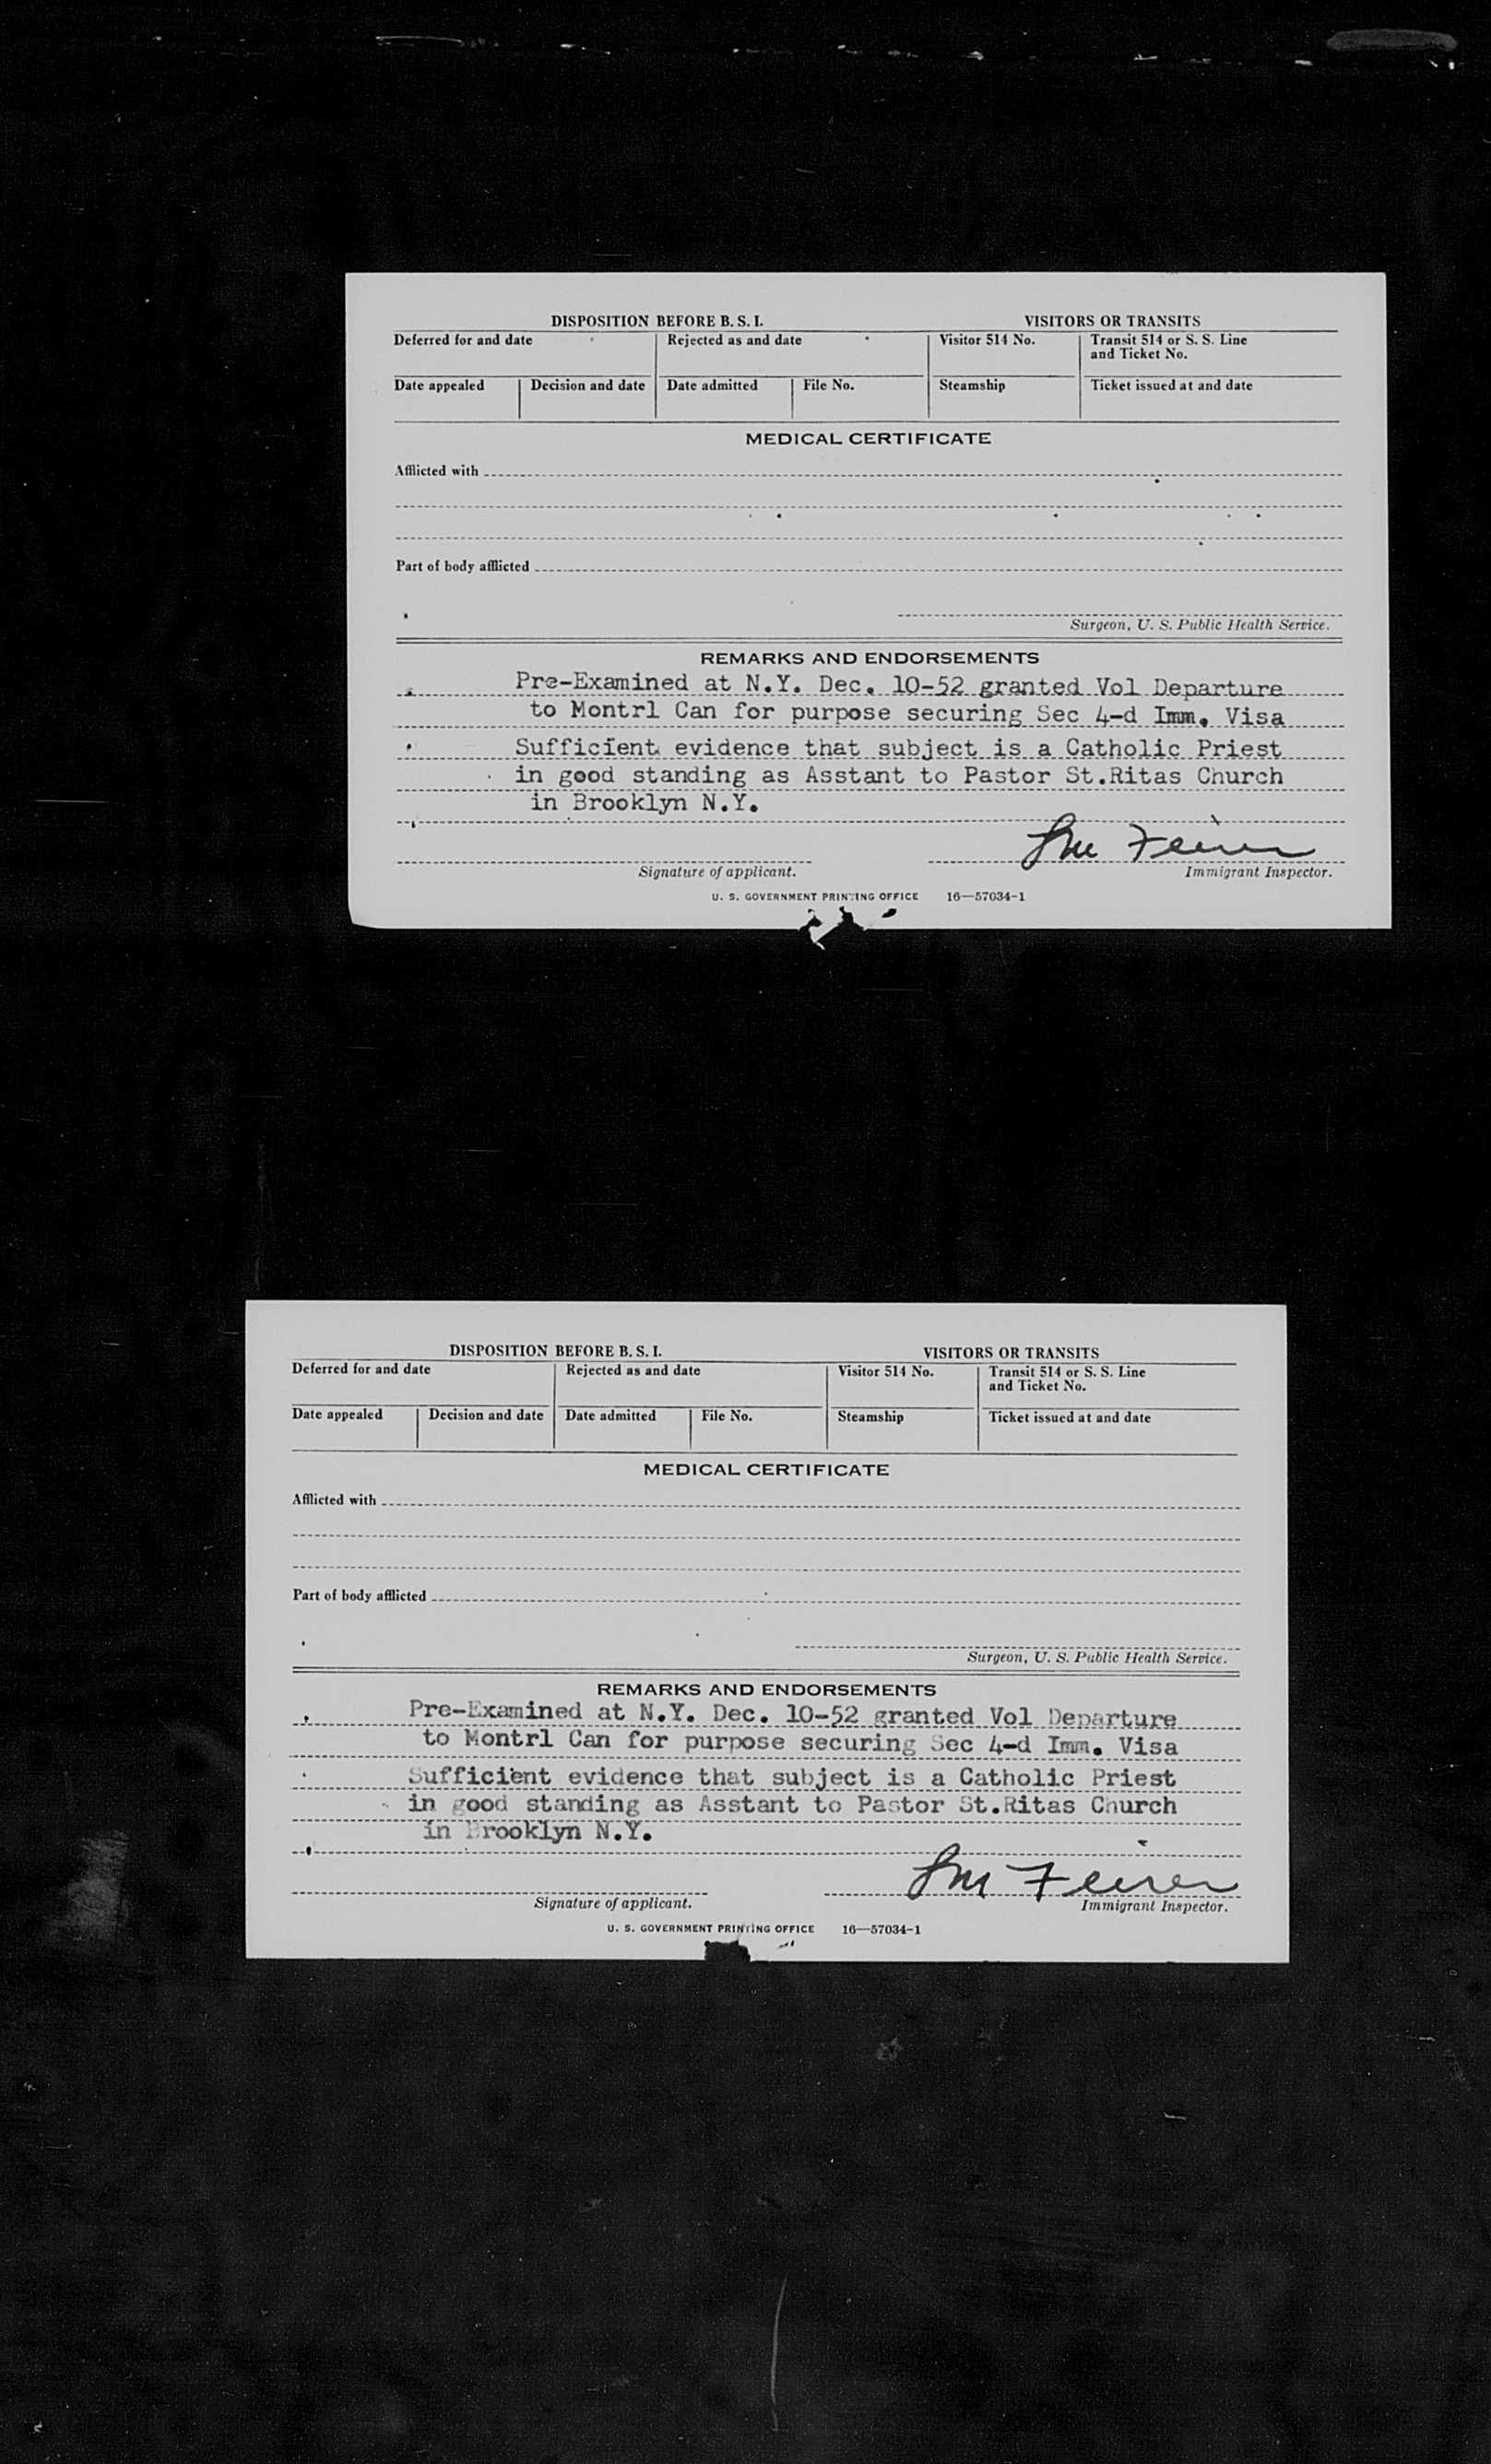 DISPOSITION BEFORE B. S. I. VISITORS OR TRANSITS
Deferred for and date Rejected as and date Visitor 514 No. Transit 514 or S. S. Line
and Ticket No.
Date appealed Decision and date Date admitted File No. Steamship Ticket issued at and date
MEDICAL CERTIFICATE
Afflicted with
Part of body afflicted
Surgeon, U. S. Public Health Service.
REMARKS AND ENDORSEMENTS
Pre-Examined at N.Y. Dec. 10-52 granted Vol Departure
to Montrl Can for purpose securing Sec 4-d Imm. Visa
Sufficient evidence that subject is a Catholic Priest
in good standing as Asstant to Pastor St.Ritas Church
in Brooklyn N.Y.
Signature of applicant. Immigrant Inspector.
U. S. GOVERNMENT PRINTING OFFICE 16—57034-1
DISPOSITION BEFORE B. S. I. VISITORS OR TRANSITS
Deferred for and date Rejected as and date Visitor 514 No. Transit 514 or S. S. Line
and Ticket No.
Date appealed Decision and date Date admitted File No. Steamship Ticket issued at and date
MEDICAL CERTIFICATE
Afflicted with
Part of body afflicted
Surgeon, U. S. Public Health Service.
REMARKS AND ENDORSEMENTS
Pre-Examined at N.Y. Dec. 10-52 granted Vol Departure
to Montrl Can for purpose securing Sec 4-d Imm. Visa
Sufficient evidence that subject is a Catholic Priest
in good standing as Asstant to Pastor St.Ritas Church
in Brooklyn N.Y.
Signature of applicant. Immigrant Inspector.
U. S. GOVERNMENT PRINTING OFFICE 16—57034-1